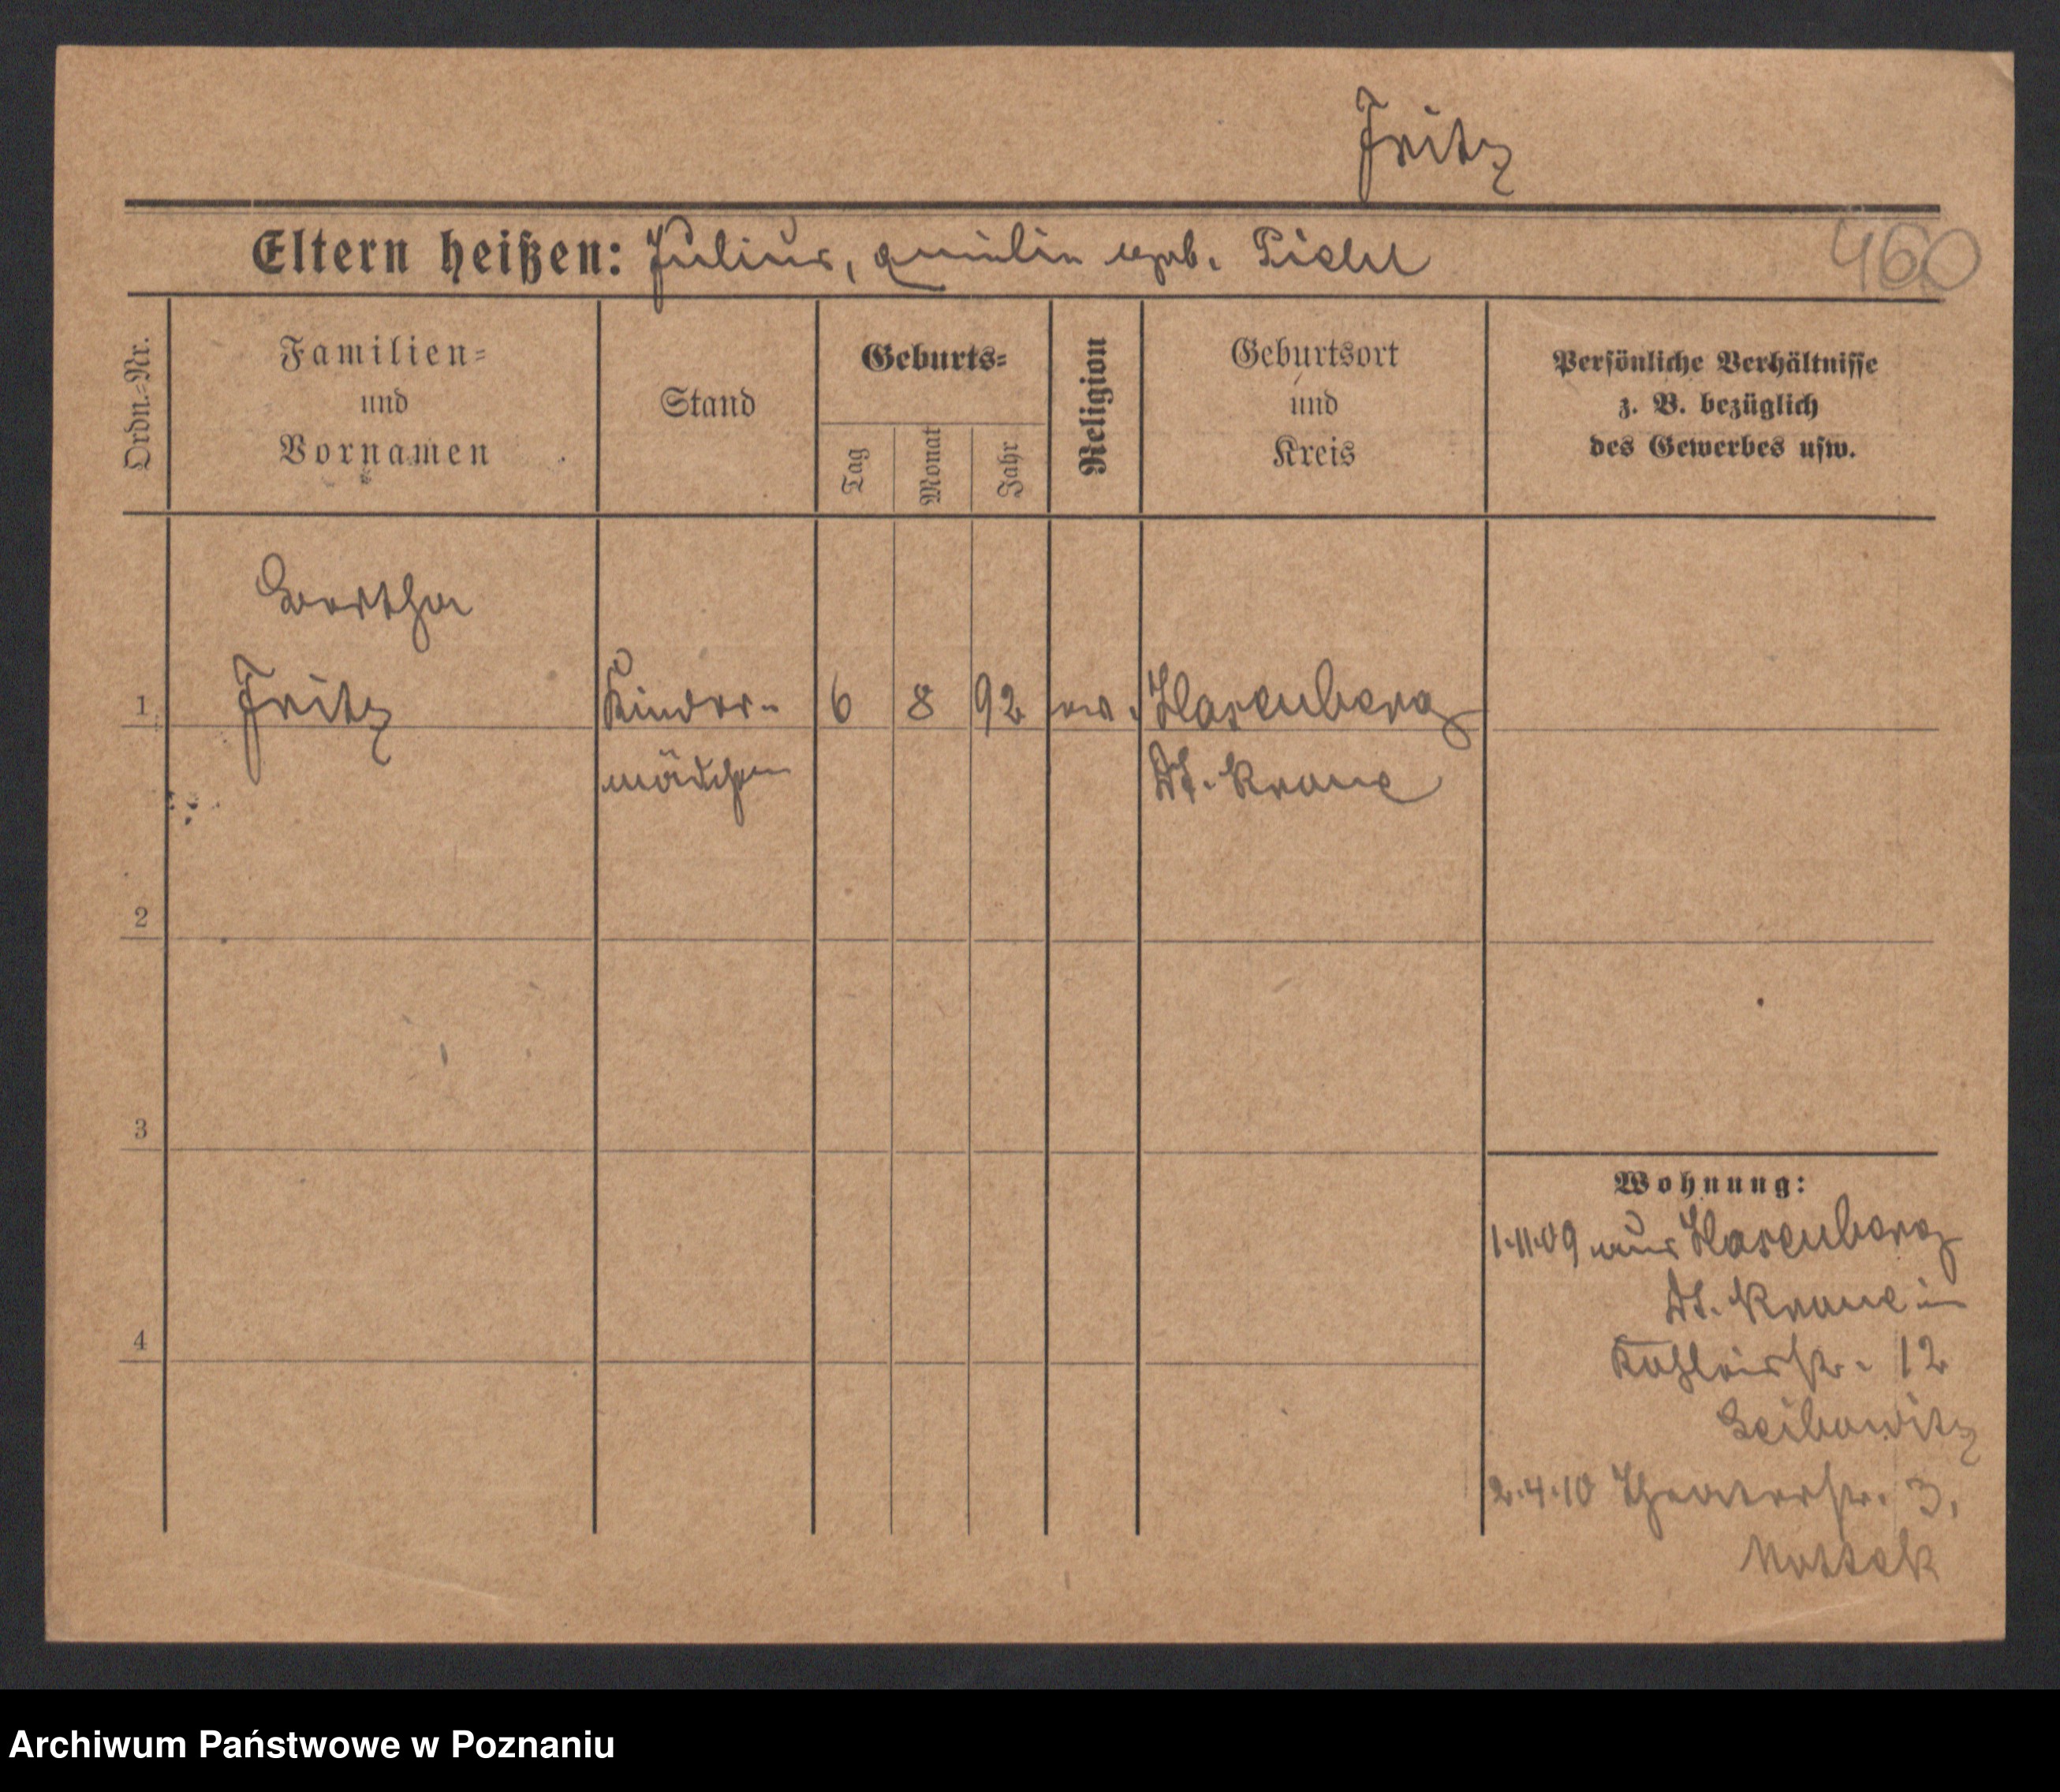 Fritz
460
Eltern heißen: Julius, Emilie geb. Pichl
Ordn.-Nr.
Familien-
und
Vornamen
Stand
Geburts-
Tag
Monat
Jahr
Religion
Geburtsort
und
Kreis
Persönliche Verhältnisse
z. B. bezüglich
des Gewerbes usw.
Bertha
1 Fritz Kinder- 6 8 92 ev. Hasenberg
mädchen Dt. Krone
2
3
4
Wohnung:
1.11.09 aus Hasenberg
Dt. Krone in
12
Leibowitz
2.4.10 Theaterstr. 3,
Mottek
Archiwum Państwowe w Poznaniu